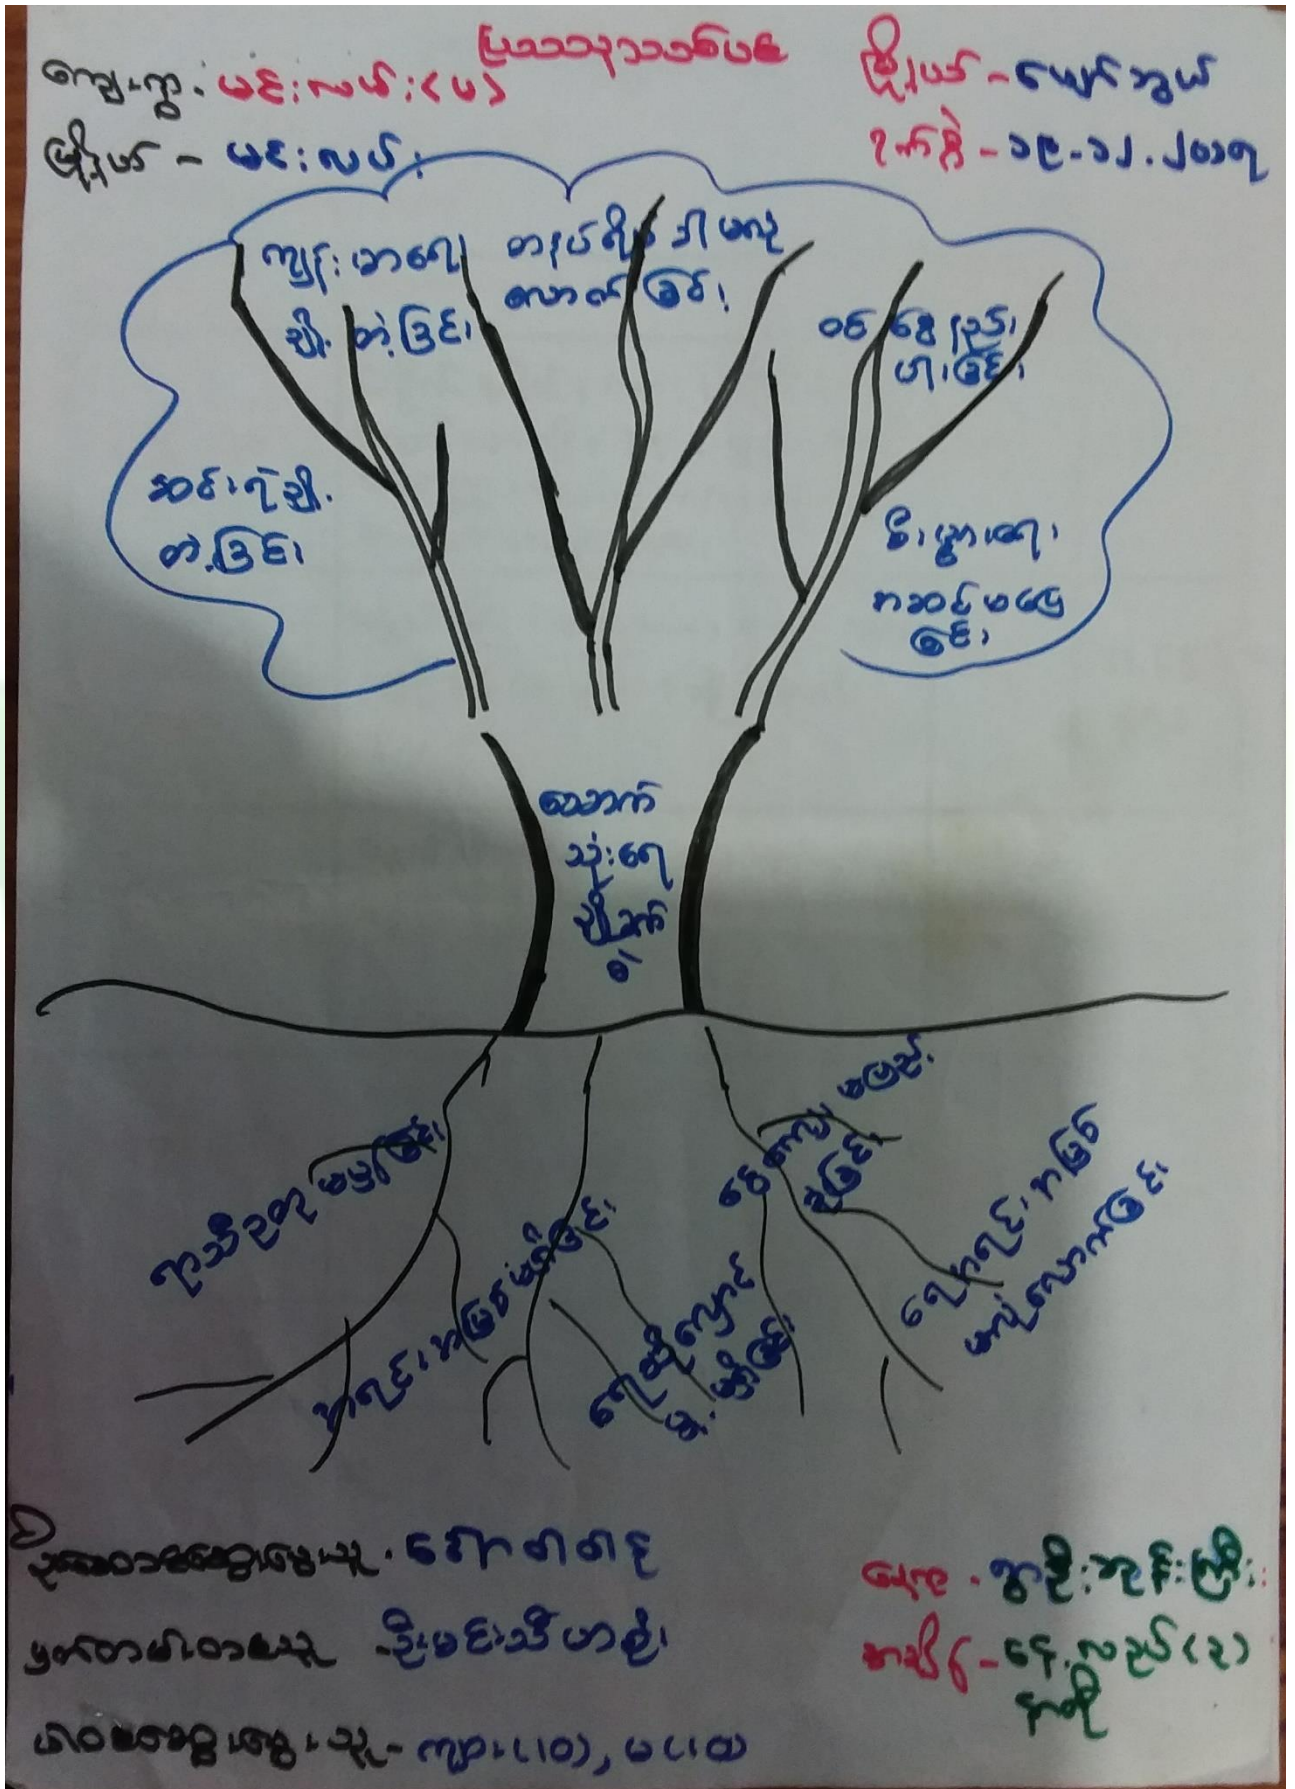 ပြဿနာသစ်ပင်
ကျေးရွာ - မင်းလယ်း(မ)
မြို့နယ် - မင်းလယ်း
မြို့နယ် - ပျော်ဘွယ်
ရက်စွဲ - ၁၉-၁၂-၂၀၁၇
ကျန်းမာရေး
ချို့တဲ့ခြင်း
တနပ်ရိပ် ဝါမလု
လောက်ခြင်း
ဝင်ငွေနည်း
ပါးခြင်း
ဆင်းရဲချို့
တဲ့ခြင်း
စီးပွားရေး
အဆင်မပြေ
ခြင်း
သောက်
သုံးရေ
ချို့တဲ့
ရာသီဥတု မမျှခြင်း
အရင်းအမြစ်မရှိခြင်း
ရေသိုလှောင်
မရှိခြင်း
ငွေကြေး မပြည့်
စုံခြင်း
ရေအရင်းအမြစ်
မလုံလောက်ခြင်း
ဦးဆောင်ဆွေးနွေးသူ -
မှတ်တမ်းတင်သူ - ဦးမင်းသီဟစိုး
ပါဝင်ဆွေးနွေးသူ - ကျား(၁၀), မ(၁၀)
နေရာ - ရွာဦးဘုန်းကြီး
အချိန် - နေ့လည်(၁)
နာရီ